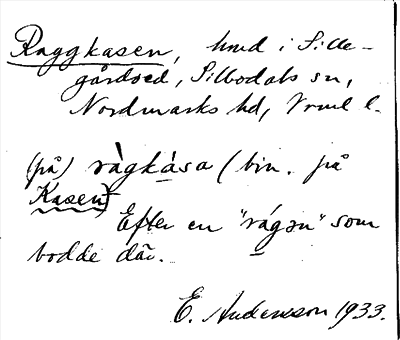 Raggkasen, hmd i Sille-
gårdsed, Silbodals sn,
Nordmarks hd, Vrml l.
(på) ràgkása (bin. på
Kasen)
Efter en "rágən" som
bodde där.
E. Andersson 1933.